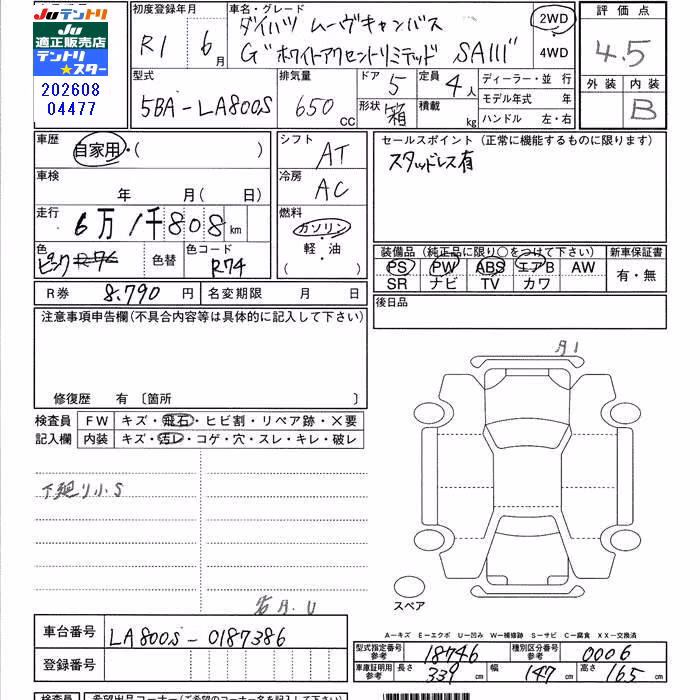 Juテントリ
Ju
適正販売店
テントリ
★スター
202608
04477
初度登録年月
R1 6月
車名・グレード
ダイハツ ムーヴキャンバス
G"ホワイトアクセントリミテッド SAⅢ"
2WD
4WD
評価点
4.5
外装 内装
B
型式
5BA-LA800S
排気量
650 CC
ドア 5
形状 箱
定員 4人
積載 kg
ディーラー・並行
モデル年式 年
ハンドル 左・右
車歴
自家用・( )
車検
年 月( 日)
走行
6万1千808km
色
ピンク R76
色替
色コード
R74
シフト
AT
冷房
AC
燃料
ガソリン
・
軽・油
( )
セールスポイント(正常に機能するものに限ります)
スタッドレス有
装備品(純正品に限り○をつけて下さい)
PS PW ABS エアB AW
SR ナビ TV カワ
新車保証書
有・無
後日品
R券 8,790円
名変期限 月 日
注意事項申告欄(不具合内容等は具体的に記入して下さい)
修復歴 有〔箇所 〕
検査員
記入欄
FW キズ・飛石・ヒビ割・リペア跡・×要
内装 キズ・汚レ・コゲ・穴・スレ・キレ・破レ
下廻り小S
スペア
A-キズ E-エクボ U-凹み W-補修跡 S-サビ C-腐食 XX-交換済
車台番号 LA800S-0187386
登録番号
型式指定番号
参考
18746
種別区分番号
参考
0006
車庫証明用
参考
長さ 339cm
幅 147cm
高さ 165cm
検査員
希望出品コーナー(ご希望のコーナー名を記入下さい)